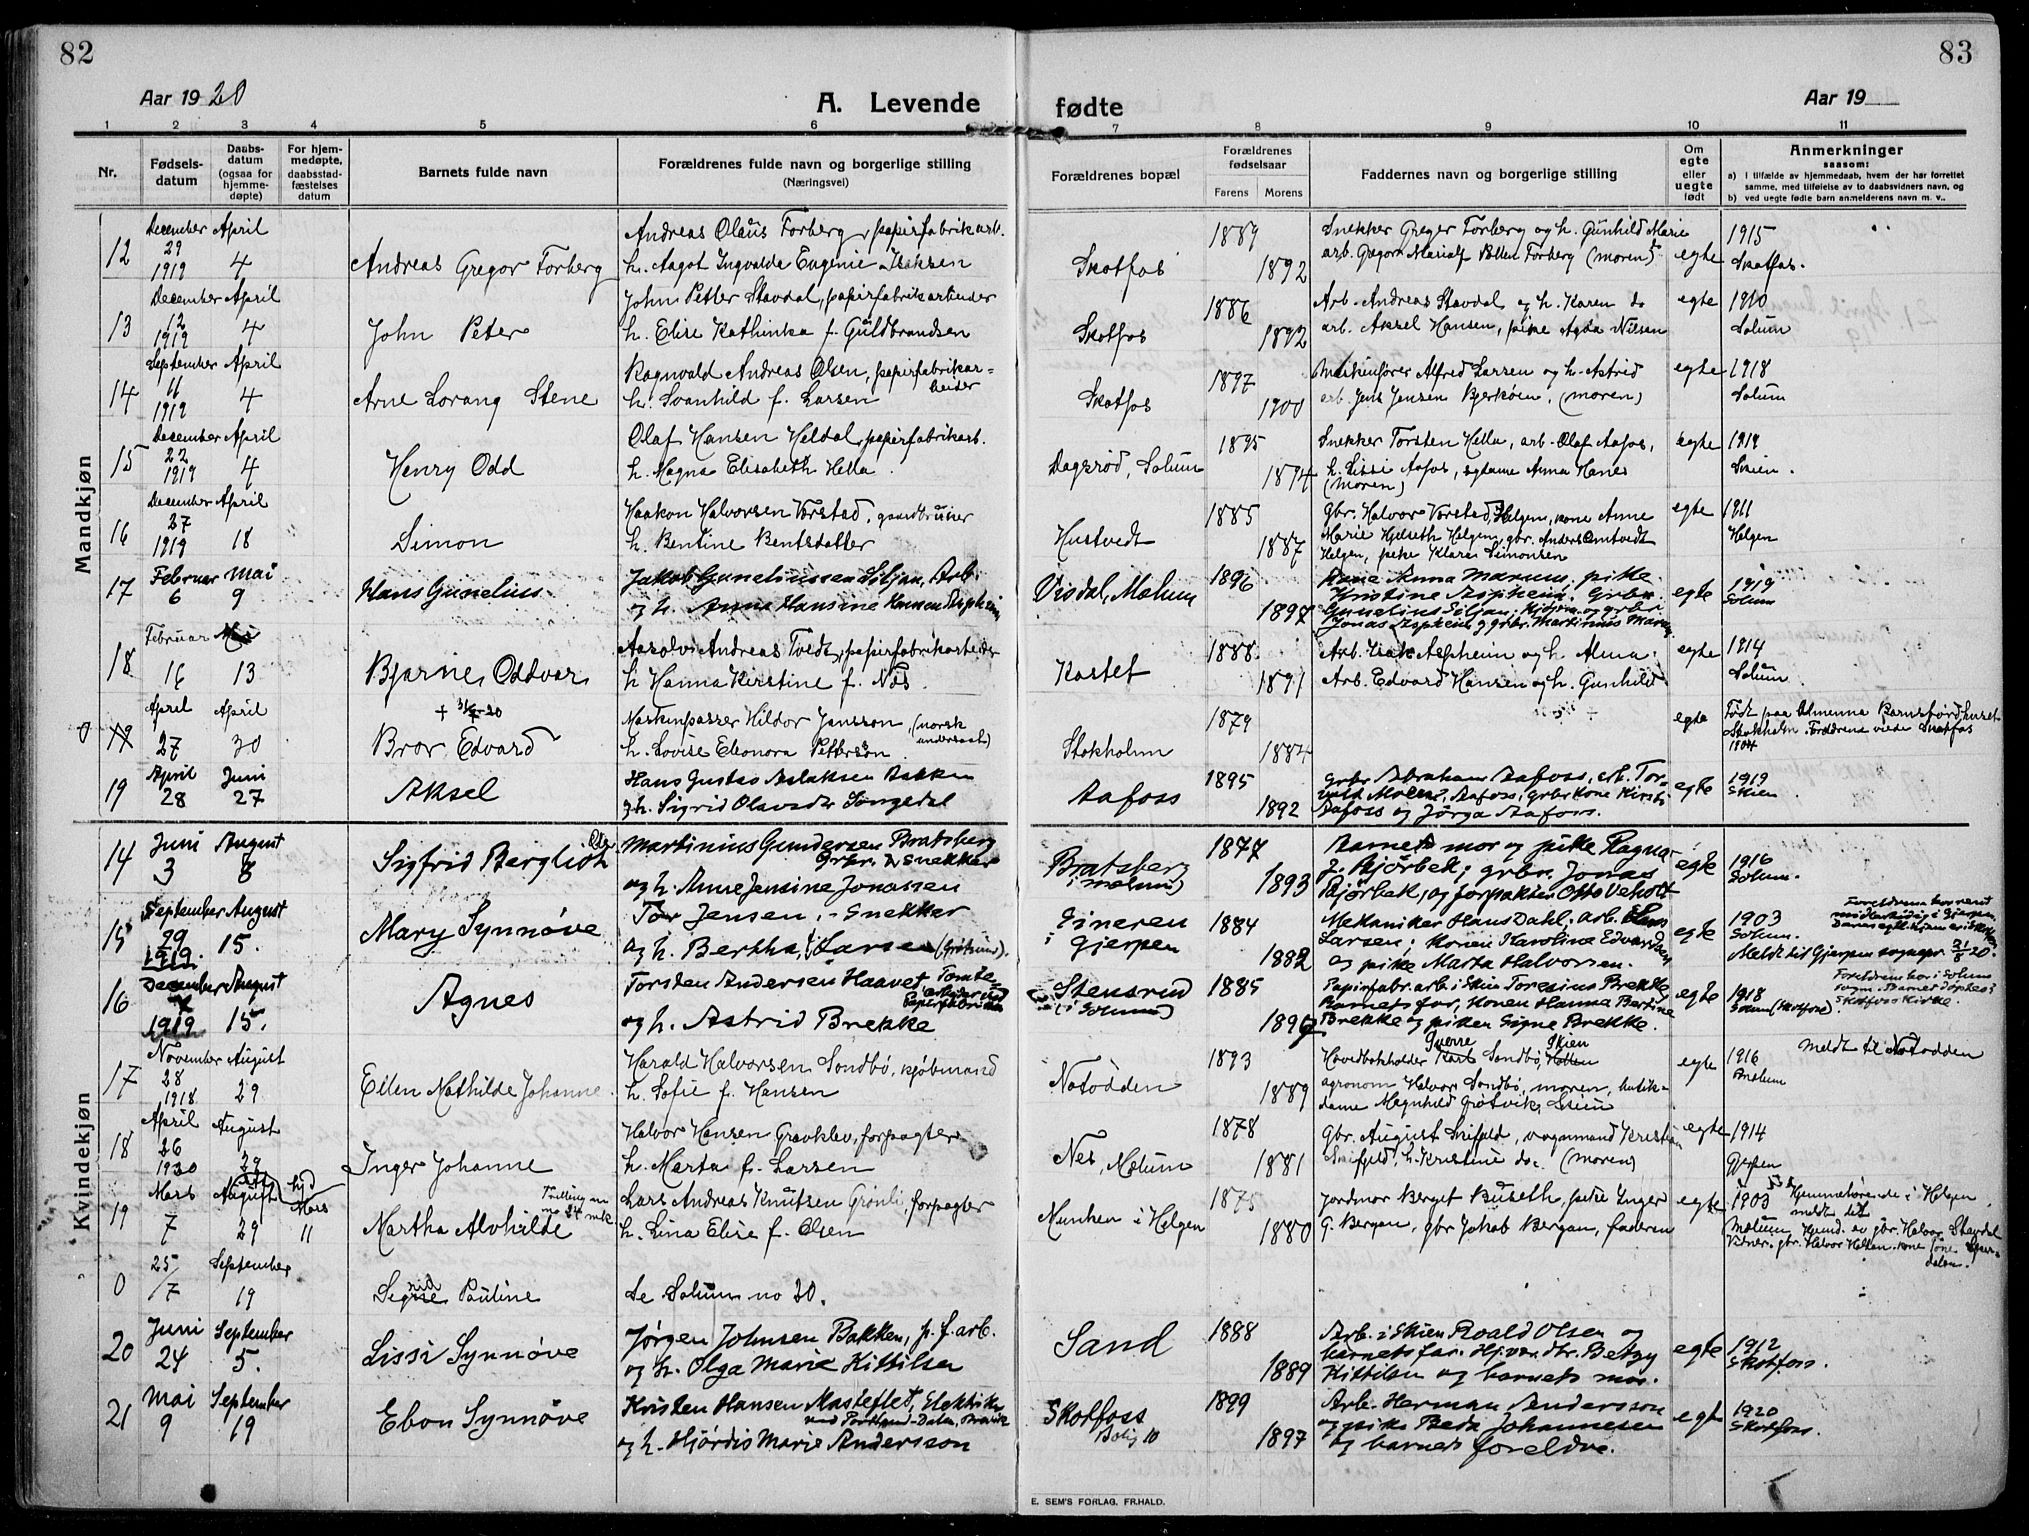 82
83
Aar 1920
A. Levende
fødte
Aar 19
1 2 3 4 5 6 7 8 9 10 11
Nr.
Fødsels-
datum
Daabs-
datum
(ogsaa for
hjemme-
døpte)
For hjem-
medøpte,
daabsstad-
fæstelses
datum
Barnets fulde navn
Forældrenes fulde navn og borgerlige stilling
(Næringsvei)
Forældrenes bopæl
Forældrenes
fødselsaar
Farens Morens
Faddernes navn og borgerlige stilling
Om
egte
eller
uegte
født
Anmerkninger
saasom:
a) i tilfælde av hjemmedaab, hvem der har forrettet
samme, med tilføielse av to daabsvidners navn, og
b) ved uegte fødte barn anmelderens navn m. v..
Mandkjøn
12 December 29 1919 April 4 Andreas Gregor Forberg
Andreas Olaus Forberg, papirfabrikarb.
h. Aagot Ingvalda Eugenie Isaksen
Skotfos 1889 1892
Snekker Greger Forberg og h. Gunhild Marie
Forberg (moren) egte 1915
Skotfos.
13 December 12 1919 April 4 John Peter
John Petter Stavdal, papirfabrikarbeider
h. Elise Kathinka f. Guldbrandsen
Skotfos 1886 1892
Arb. Andreas Stavdal og h. Karen do
arb. Aksel Hansen, pike Agda Nilsen egte 1910
Solum
14 September 11 1919 April 4 Arne Lorang Stene
Ragnvald Andreas Olsen, papirfabrikar-
beider
h. Svanhild f. Larsen
Skotfos 1897 1900
Maskinfører Alfred Larsen og h. Astrid
arb. Jens Jensen Bjerkøen, (moren) egte 1918
Solum
15 December 22 1919 April 4 Henry Odd
Olaf Hansen Heldal, papirfabrikarb.
h. Magna Elisabeth Hella.
Dagsrød, Solum 1895 1894
Snekker Torsten Hella, arb. Olaf Aafos,
h. Lissi Aafos, Anna Hanes
(moren) egte 1919
Skien.
16 December 27 1919 April 18 Simon
Haakon Halvorsen Vorstad, gaardbruker
h. Bentine Bentsdatter
Hustvedt 1885 1887
Gbr. Halvor Vorstad, Helgen, kone Anne
Marie Hjelseth Helgen, gbr. Anders Omtvedt
Helgen, pike Klara Simonsen egte 1911
Helgen
17 Februar 6 Mai 9 Hans Gunelius
Jakob Guneliussen Siljan, Arb.
og h. Anna Hansine Hansen Aspheim
Visdal, Melum 1896 1897
Anna Marum, pike
Kristine Aspheim. Grbr.
Gunelius Siljan,
Jonas Aspheim og grbr. Martinius Marum egte 1919
Solum
18 Februar 16 Mai 13 Bjarne Oddvar
Aasolv Andreas Tvedt, papirfabrikarbeider
h. Hanna Kirstine f. Næs.
Kastet 1888 1891
Arb. Isak Aspheim og h. Alma.
Arb. Edvard Hansen og h. Gunhild. egte 1914
Solum
0 19 April 27 April 30 Bror Edvard
Maskinpasser Hildor Jansson, (norsk
undersaat)
h. Lovise Eleonora Petterson
Stokholm 1879 1884
egte Født paa Almenna Barnsbördhuset
Stockholm. Forældrene viede Skotfos
1904
19 April 28 Juni 27 Aksel
Hans Gustav Aslaksen Bakken
og h. Sigrid Olavsdtr Songedal
Aafoss 1895 1892
grbr. Abraham Aafoss, arb. Tor-
Aafoss, grbr. kone Kirsti
Aafoss og Jørga Aafoss. egte 1919
Skien
Kvindekjøn
14 Juni 3 August 8 Sigfrid Bergliot
Martinius Gundersen Bratsberg
Grbr. & snekker
og h. Anne Jensine Jonassen
Bratsberg
i Melum 1877 1893
Barnets mor og pike Ragna
J. Bjørbek, grbr. Jonas
Bjørbek, og forpakter Otto Veholt egte 1916
Solum.
15 September 29 1919. August 15. Mary Synnøve
Tor Jensen, Snekker
og h. Bertha Larsen
i Gjerpen 1884 1882
Mekaniker Hans Dahl, arb.
Larsen, konen Karoline Edvardsen
og pike Marta Halvorsen. egte 1903
Solum.
Meldt til Gjerpen sognepr. 31/8 20.
16 December 1919 August 15. Agnes
Torsten Andersen Haavet Tomte-
arbeider ved
Papirfabrikken
og h. Astrid Brekke
Stensrud
(i Solum) 1885 1896
Papirfabr. arb. i Skien Toresius Brekke
Barnets far, konen Hanna Bertine
Brekke og piken Signe Brekke. egte 1918
Solum (Skotfoss).
Foreldrene bor i Solum
sogn. Barnet døptes i
Skotfoss Kirke.
17 November 28 1918 August 29 Eilen Mathilde Johanne
Harald Halvorsen Sondbø, kjøbmand
h. Sofie f. Hansen
Notodden 1893 1889
Hovedbokholder Sondbø, Skien
agronom Halvor Sondbø, moren, butik-
dame Magnhild Grøtvik, Skien egte 1916
Melum
Meldt til Notodden
18 April 26 1920 August 29 Inger Johanne
Halvor Hansen Gravklev, forpagter
h. Marta f. Larsen
Nes, Melum 1878 1881
Gbr. August Snifjeld, vognmand Kristian
Snifjeld, h. Kristine do. (moren) egte 1914
Gjerpen
19 Mars 7 August 29 hjd Mars 11 Martha Alvhilde
Lars Andreas Knutsen Grønli, forpagter
h. Lina Elise f. Olsen
Munken i Helgen 1875 1880
Jordmor Berget Buseth, pike Inger
G. Bergan, gbr Jakob Bergan, faderen egte 1903
Hjemmehørende i Helgen
meldt dit
Melum Hjemd. av gbr. Halvor Stavdal
Vidner: gbr. Halvor Helten, kone
0 25/7 September 19 Signe Pauline
Se Solum no 30.
20 Juni 24 September 5. Lissi Synnøve
Jørgen Johnsen Bakken, p. f. arb.
og h. Olga Marie Kittilsen
Sand 1888 1889
Arb. i Skien Roald Olsen og
barnets far. Hj.vær. dtr. Betzy
Kittilsen og barnets mor. egte 1912
Skotfoss.
21 Mai 9 September 19 Ebon Synnøve
Kristen Hansen Masteflet, Elektriker
ved Portland-Dalen, Brevik
og h. Hjördis Marie Andersson
Skotfoss
Bolig 10 1899 1897
Arb. Herman Andersson
og pike Beda Johannesen
og barnets foreldre. egte 1920
Skotfoss.
E. SEM'S FORLAG, FR.HALD.